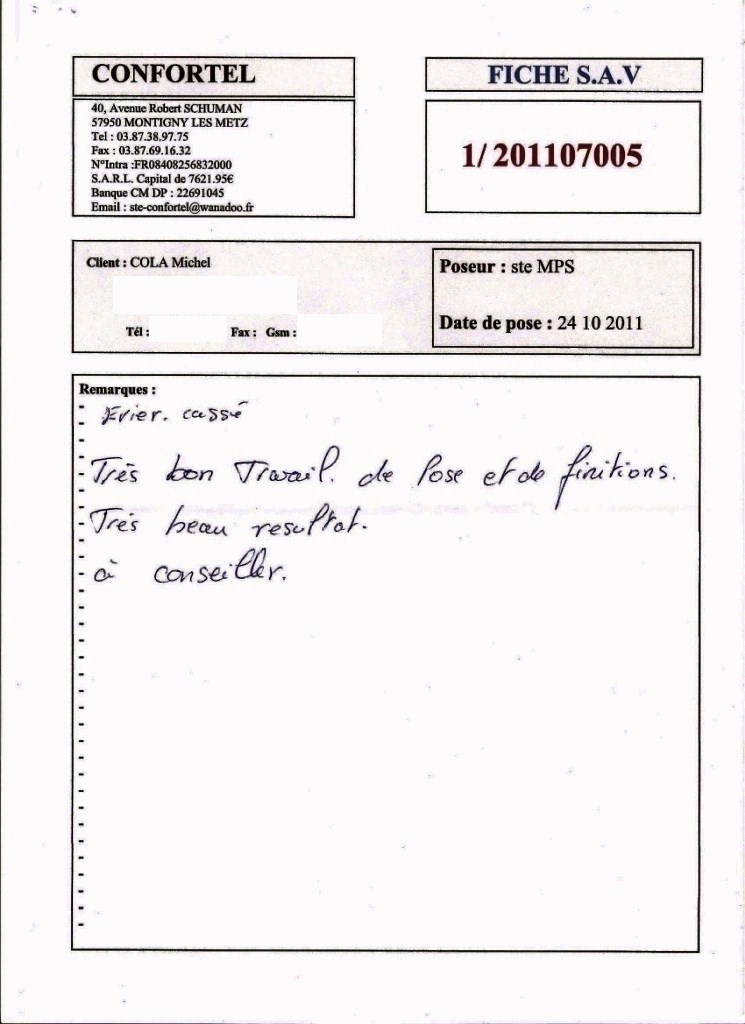 CONFORTEL
40, Avenue Robert SCHUMAN
57950 MONTIGNY LES METZ
Tel : 03.87.38.97.75
Fax : 03.87.69.16.32
N°Intra :FR08408256832000
S.A.R.L. Capital de 7621.95€
Banque CM DP : 22691045
Email : ste-confortel@wanadoo.fr
FICHE S.A.V
1/ 201107005
Client : COLA Michel
Tél : Fax : Gsm :
Poseur : ste MPS
Date de pose : 24 10 2011
Remarques :
- Evier. cassé
- Très bon Travail. de Pose et de finitions.
- Très beau resultat.
- à conseiller.